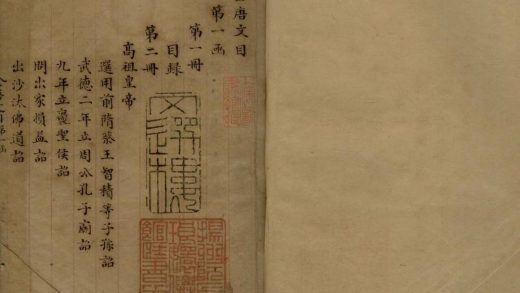 唐文目
第一函
第一冊
目録
第二冊
高祖皇帝
選用前隋蔡王智積等子孫詔
武德二年立周公孔子廟詔
九年立襃聖侯詔
問出家損益詔
出沙汰佛道詔
文選樓